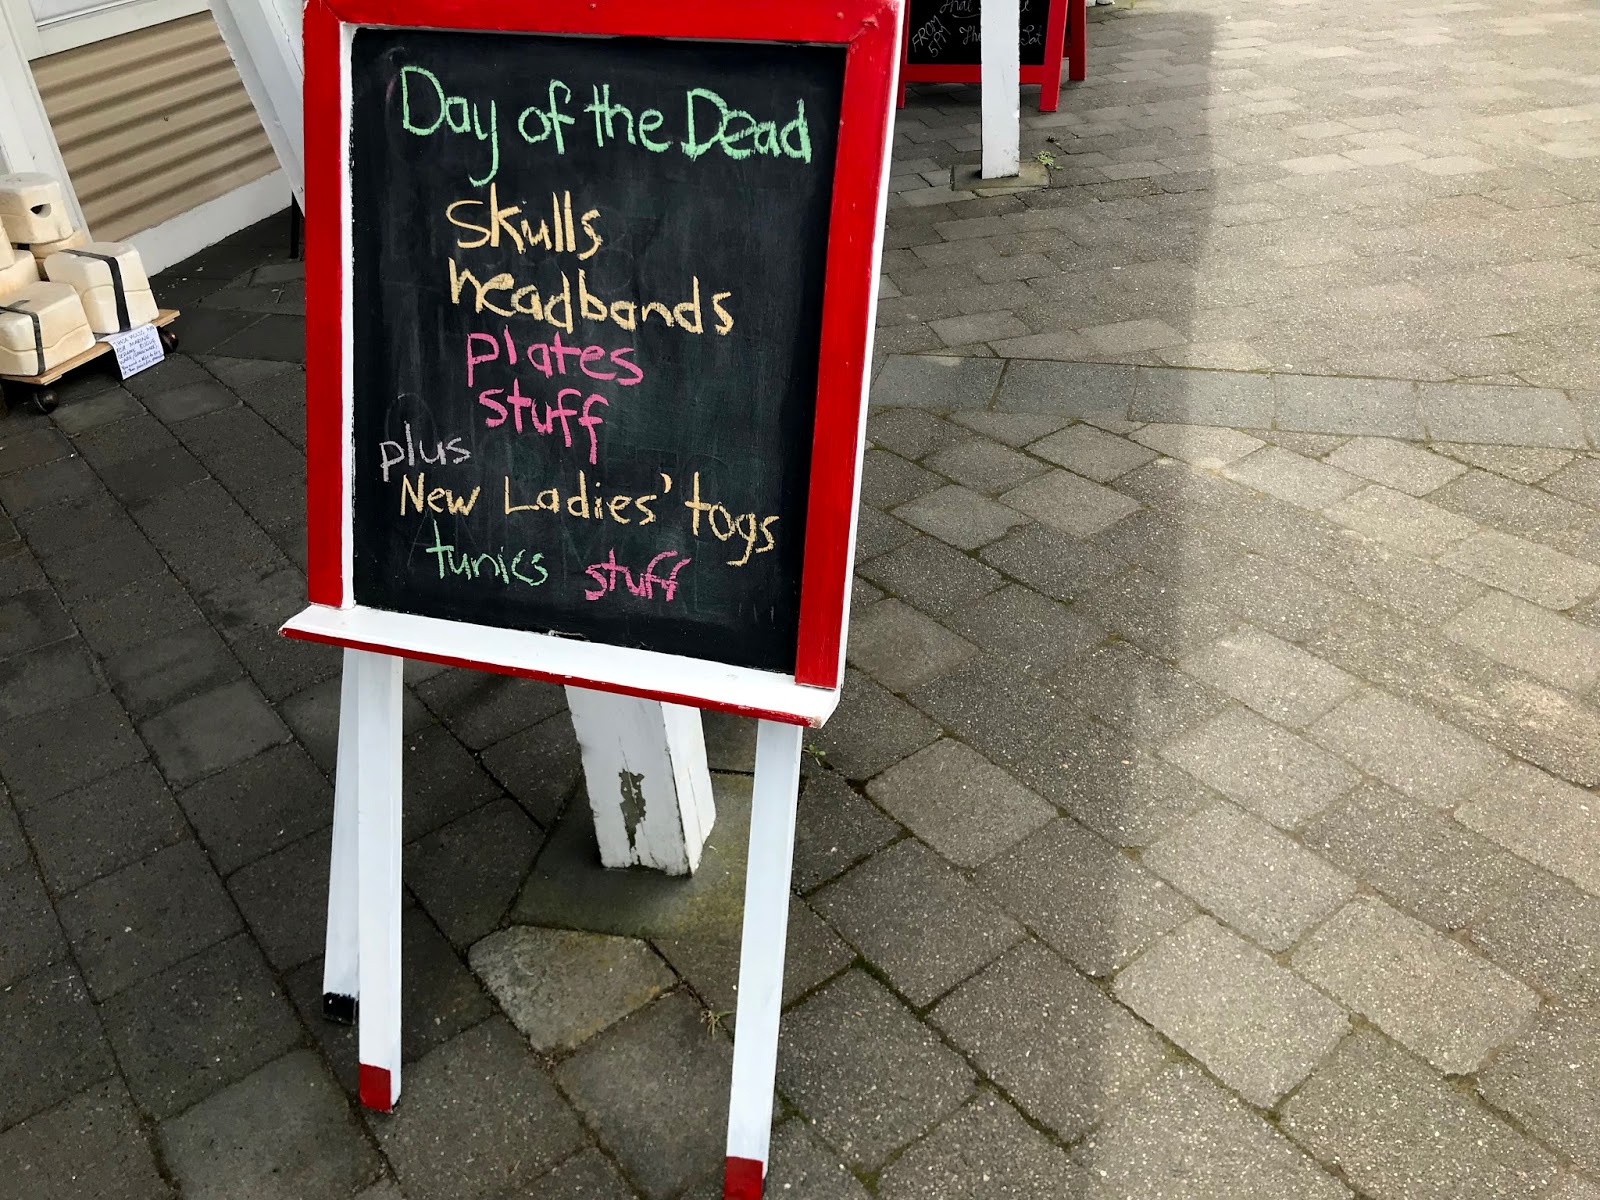 Day of the Dead
skulls
headbands
plates
stuff
plus
New Ladies' togs
tunics stuff
FROM
5PM